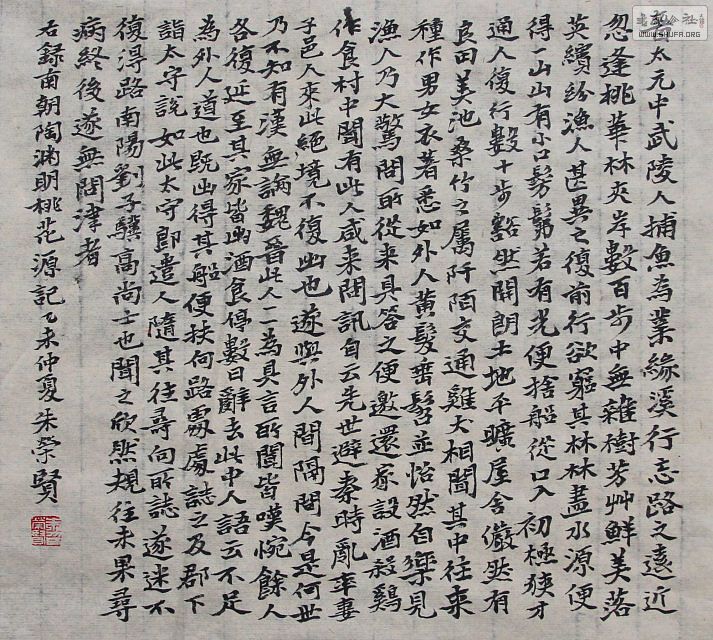 晉太元中武陵人捕魚為業緣溪行忘路之遠近
忽逢桃華林夾岸數百步中無雜樹芳艸鮮美落
英繽紛漁人甚異之復前行欲窮其林林盡水源便
得一山山有小口髣髴若有光便捨船從口入初極狹才
通人復行數十步豁然開朗土地平曠屋舍儼然有
良田美池桑竹之屬阡陌交通雞犬相聞其中往來
種作男女衣著悉如外人黃髮垂髫並怡然自樂見
漁人乃大驚問所從來具答之便邀還家設酒殺鷄
作食村中聞有此人咸來問訊自云先世避秦時亂率妻
子邑人來此絕境不復出也遂與外人間隔問今是何世
乃不知有漢無論魏晉此人一一為具言所聞皆嘆惋餘人
各復延至其家皆出酒食停數日辭去此中人語云不足
為外人道也既出得其船便扶向路處處誌之及郡下
詣太守說如此太守即遣人隨其往尋向所誌遂迷不
復得路南陽劉子驥高尚士也聞之欣然規往未果尋
病終後遂無問津者
右錄南朝陶淵明桃花源記乙未仲夏朱榮賢